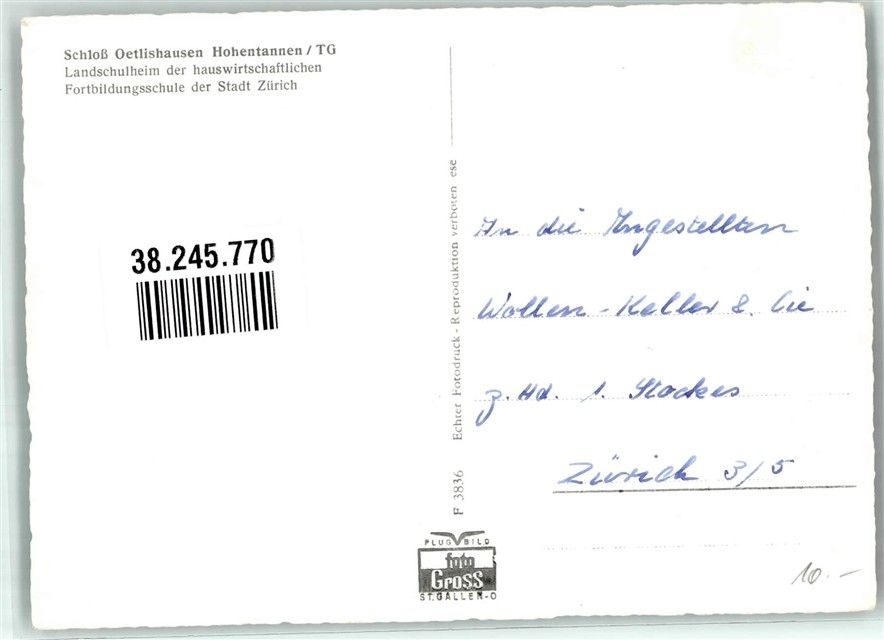 Schloß Oetlishausen Hohentannen / TG
Landschulheim der hauswirtschaftlichen
Fortbildungsschule der Stadt Zürich
38.245.770
Echter Fotodruck - Reproduktion verboten ese
F 3836
An die Angestellten
Wollen-Keller & Cie
z. Hd. 1. Stockes
Zürich 3/5
FLUGBILD
foto
Gross
ST. GALLEN-O
10.-